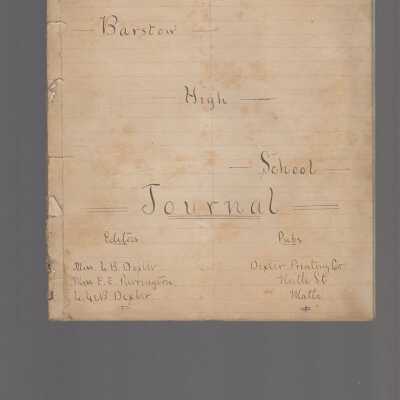 Barstow
High
School
Journal
Editors
Miss. L B. Dexter
Miss E. E. Purrington
Dexter
Pubs
Dexter Printing Co
St
Matta